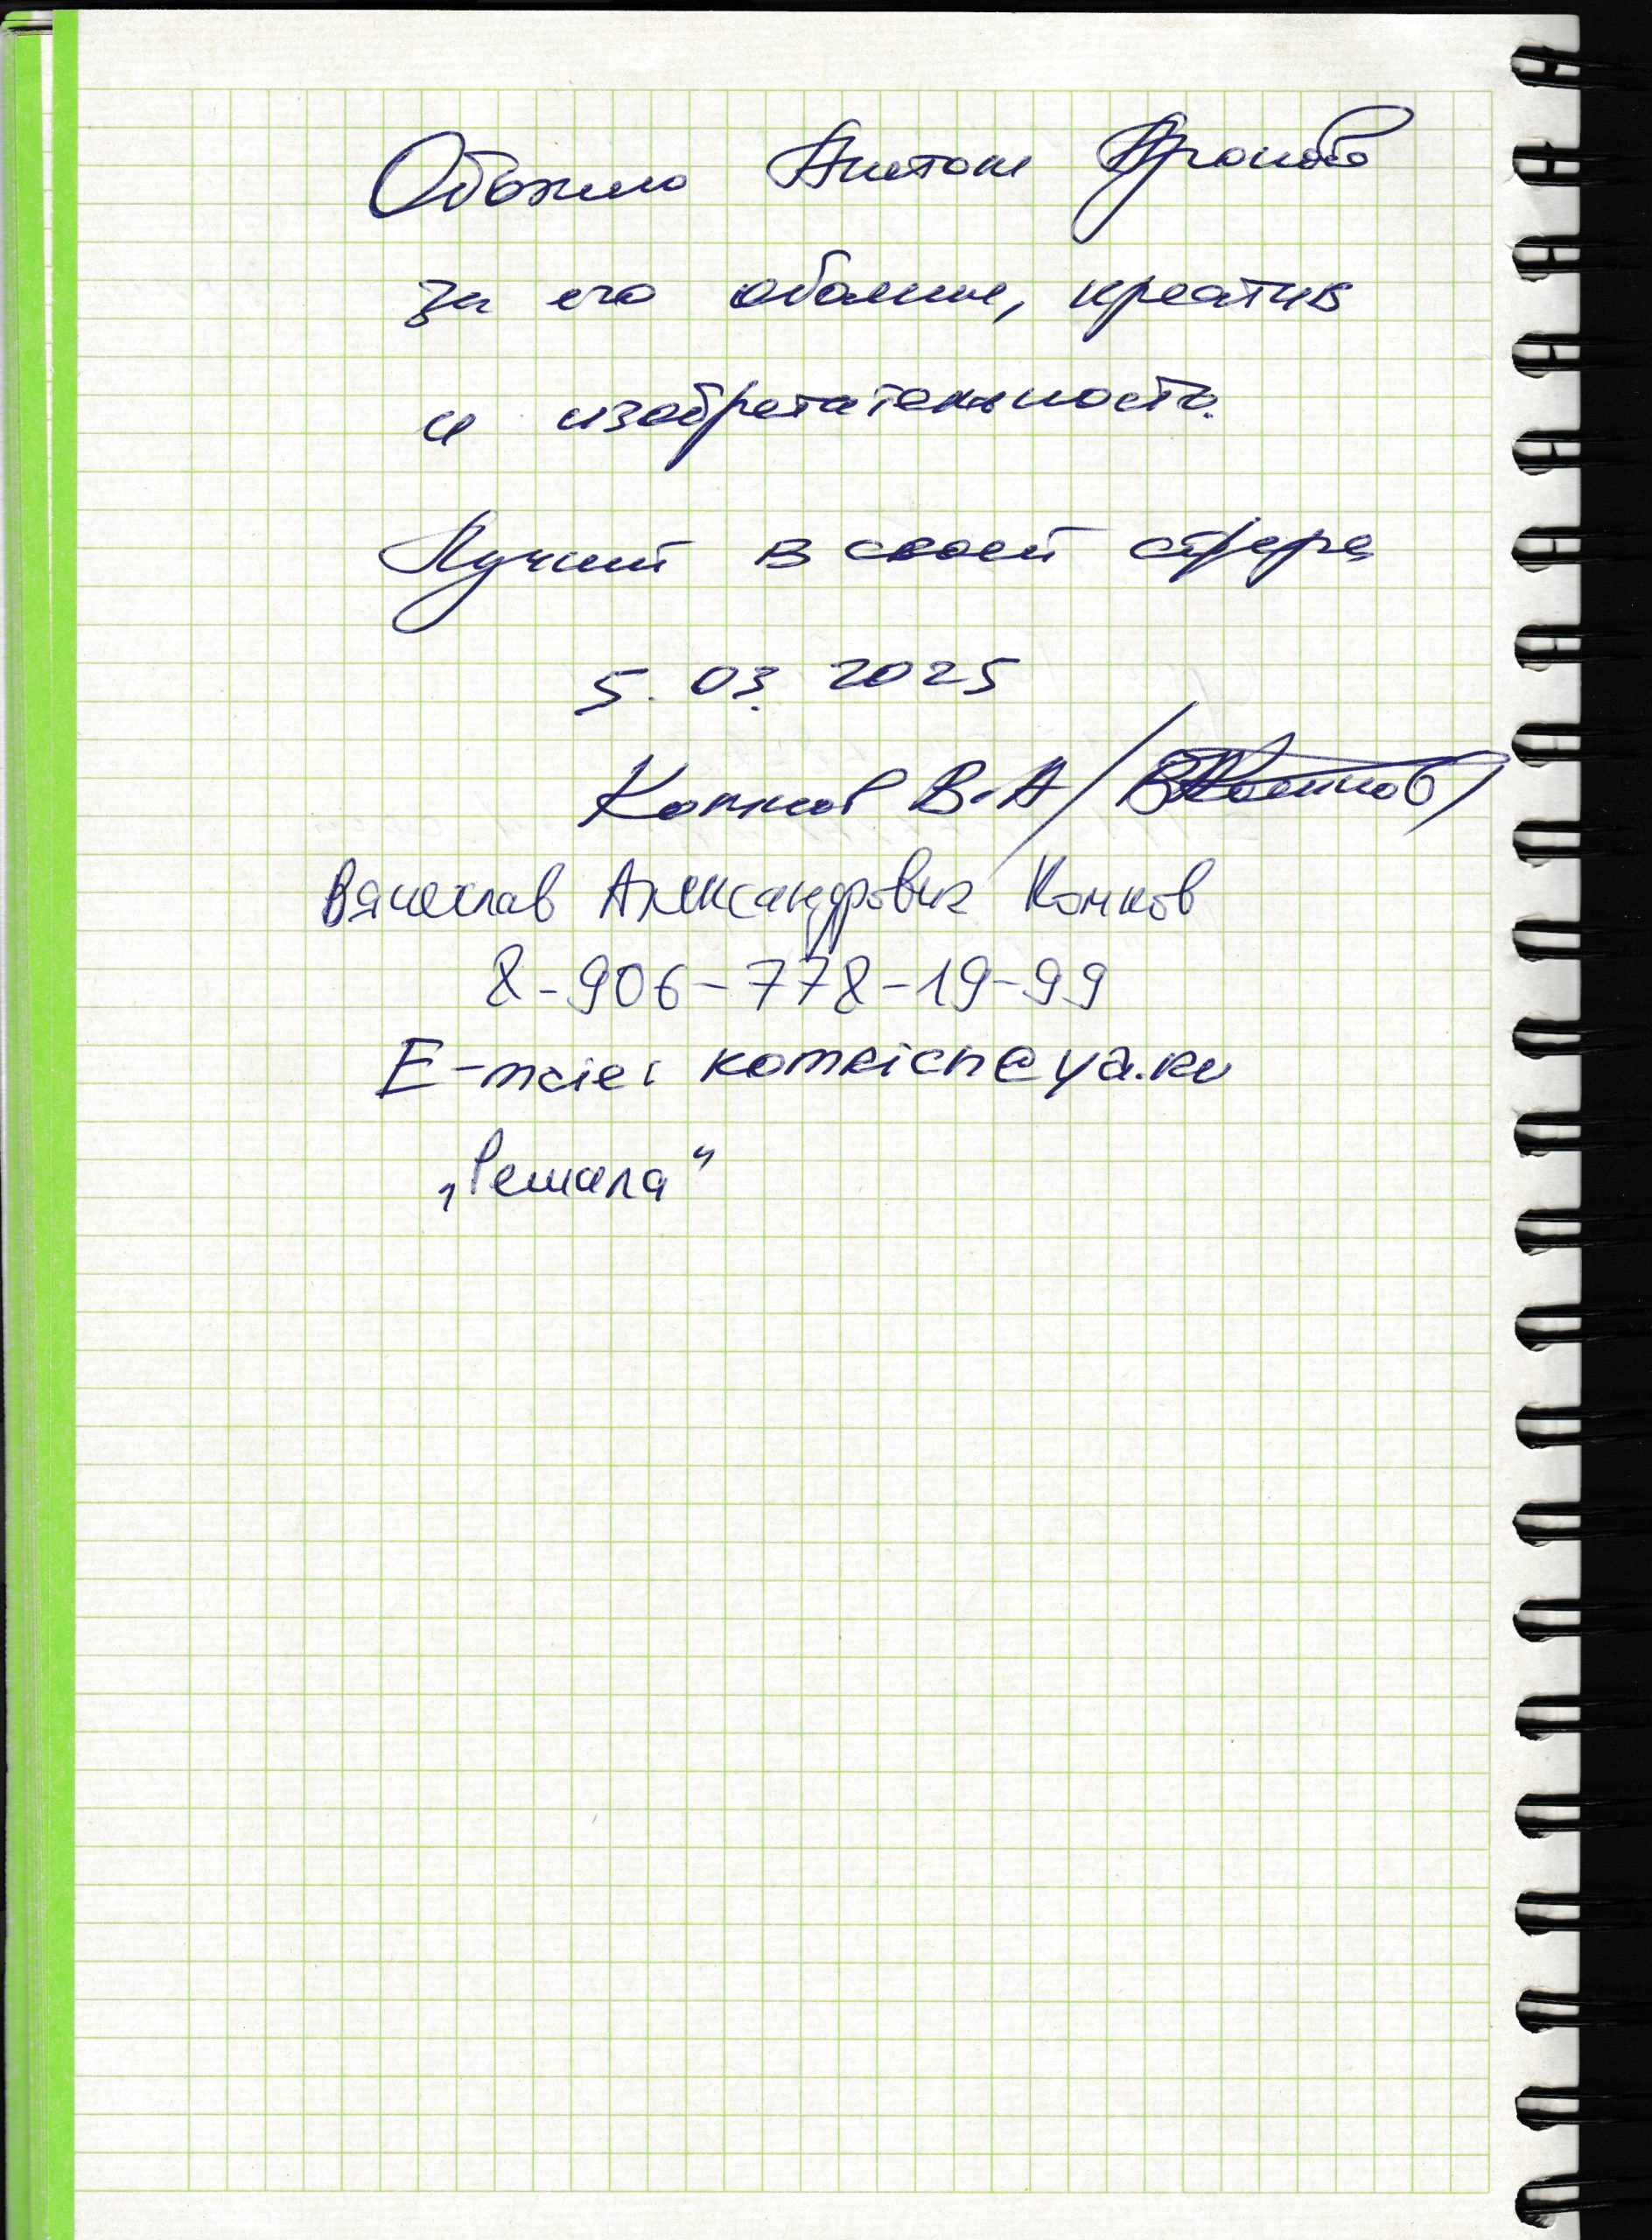 Обожаю Антона
за его обаяние, креатив
и изобретательность.
Лучший в своей сфере
5.03.2025
Комков В.А / ВКомков
Вячеслав Александрович Комков
8-906-778-19-99
E-mail: komkich@ya.ru
„Решала“